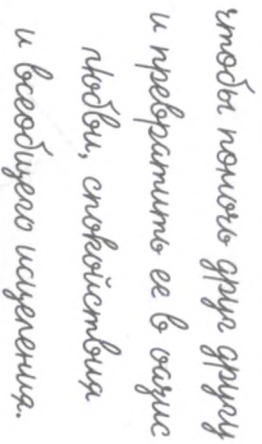 чтобы помочь друг другу
и превратить ее в оазис
любви, спокойствия
и всеобщего исцеления.